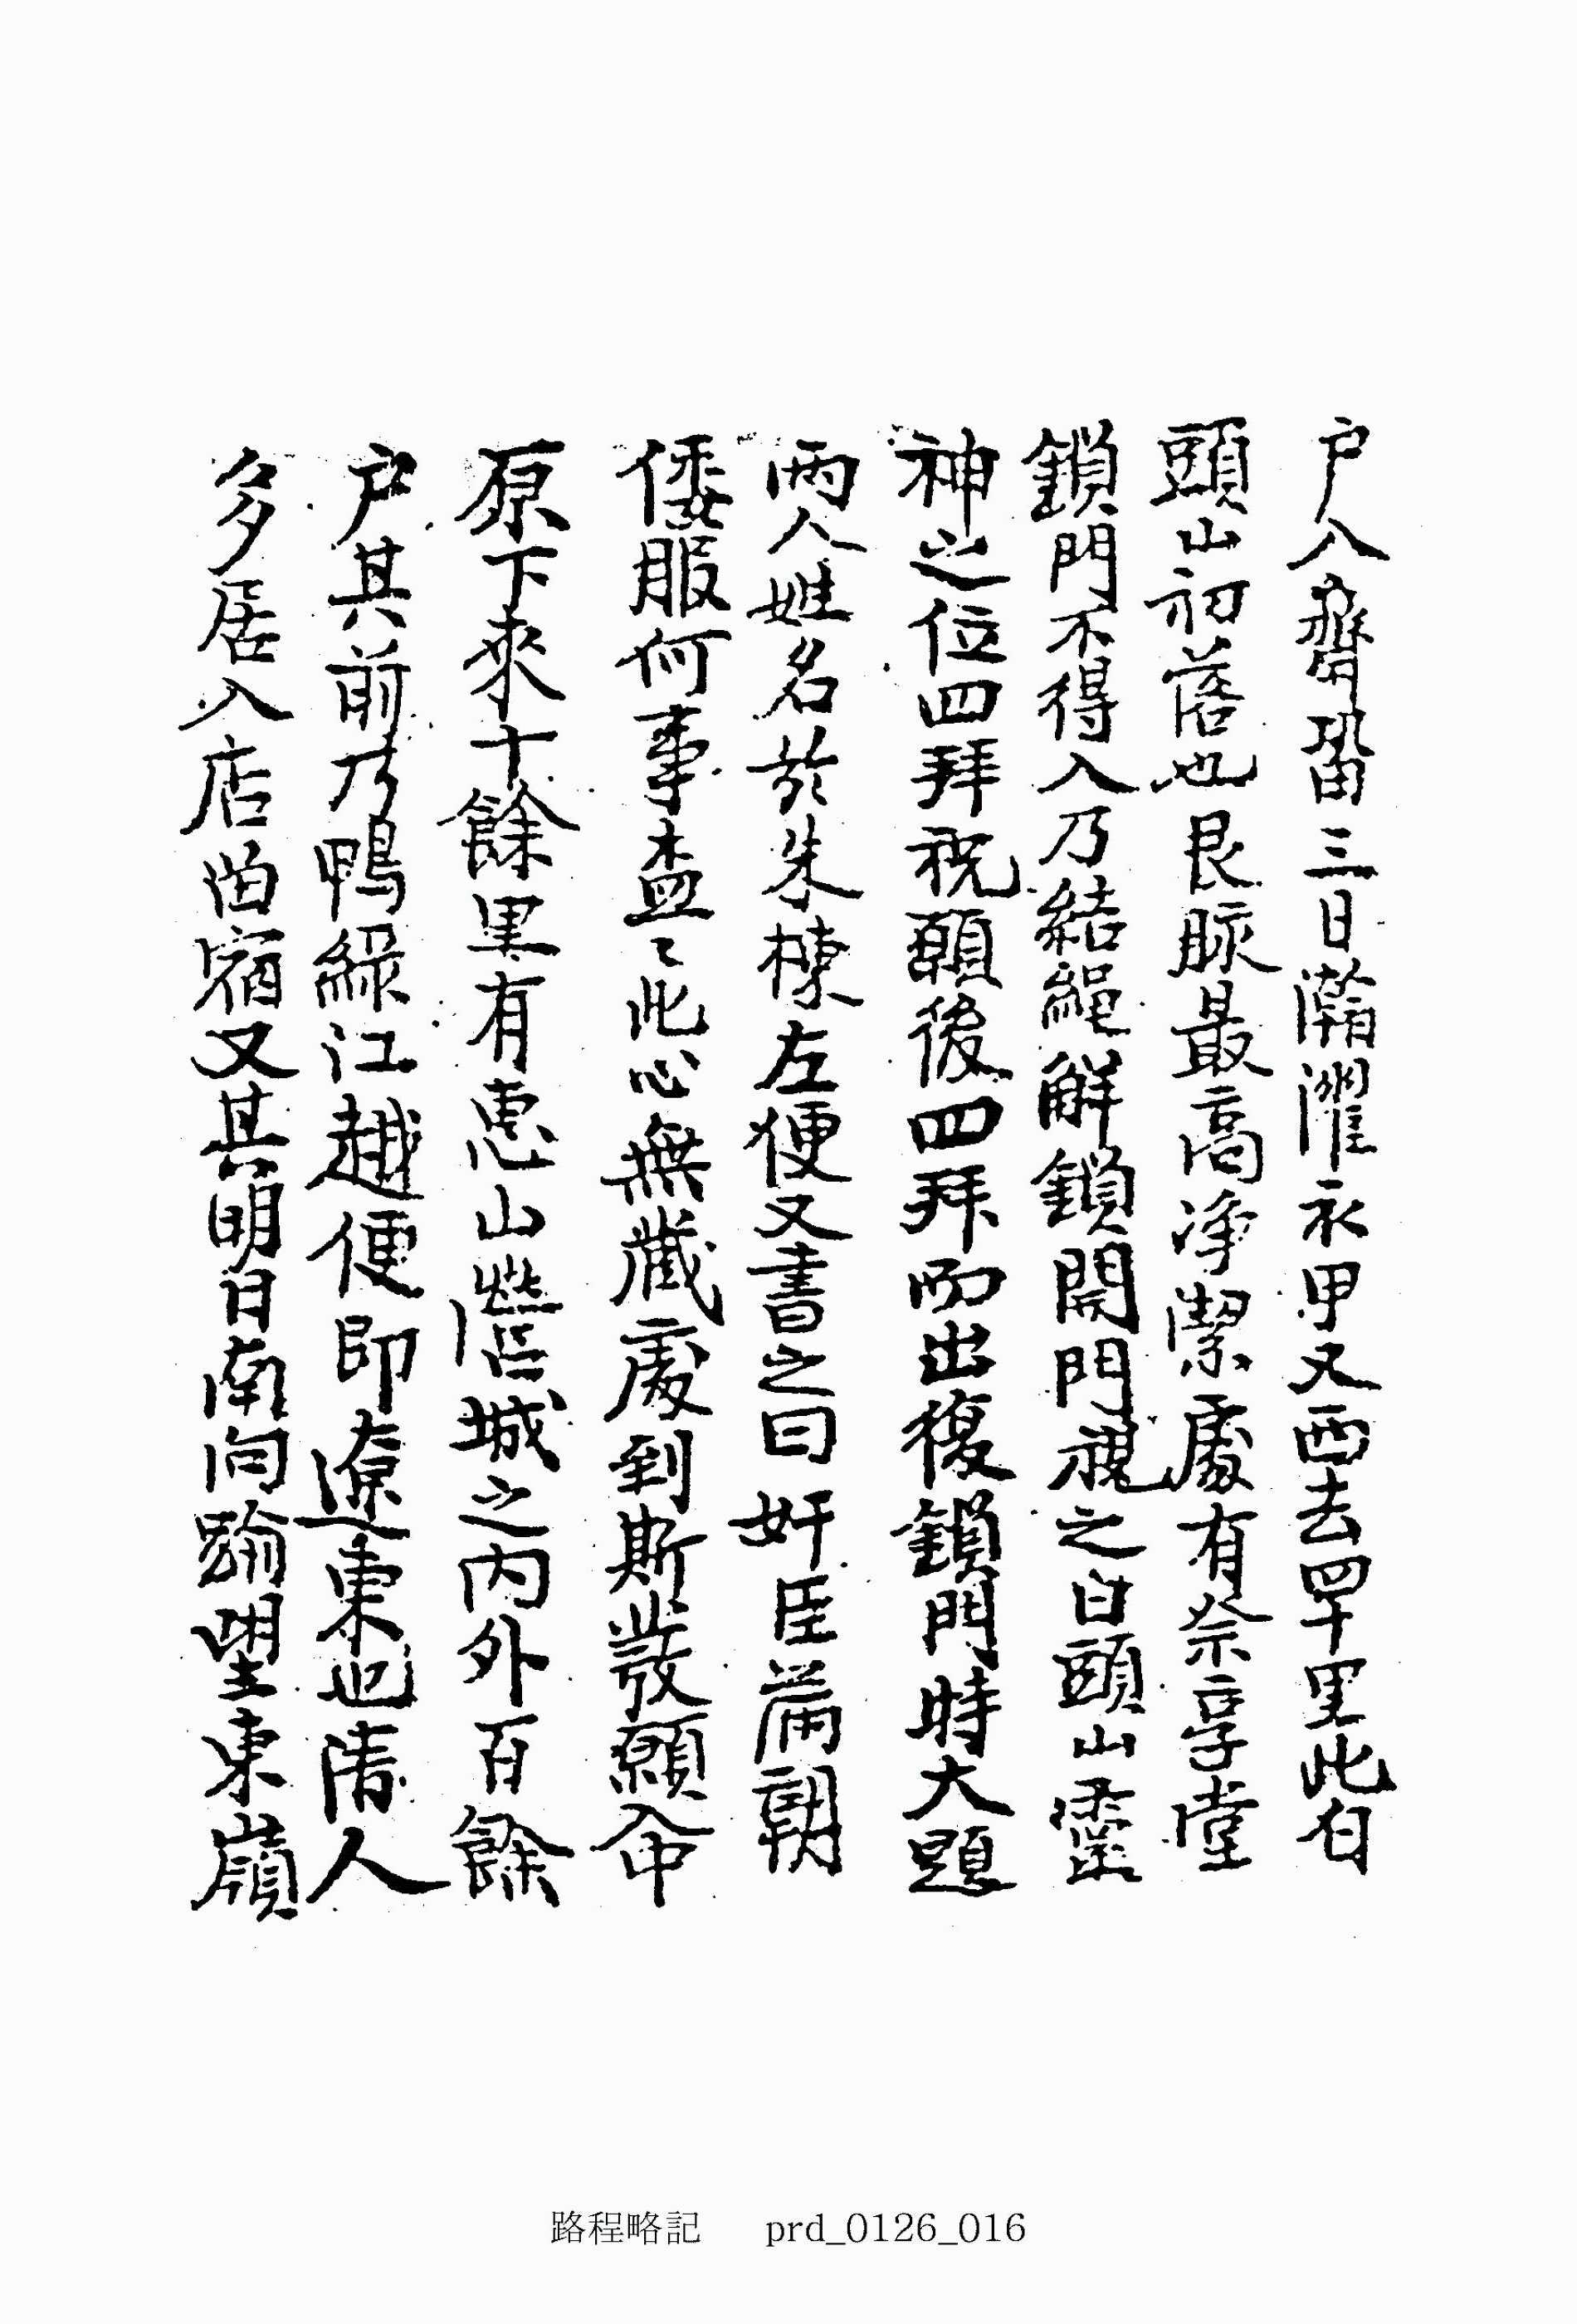 户入齋留三日瀚濯衣甲又西去四十里此白
頭山初落也艮脉最高净潔處有祭享堂
鎖門不得入乃結繩解鎖開門視之白頭山靈
神之位四拜祝願後四拜而出復鎖門時大題
兩人姓名於朱棟左便又書之曰奸臣滿朝
倭服何事盍〻此心無藏處到斯發願命
原下來十餘里有惠山鎭城之內外百餘
户其前乃鴨綠江越便即遼東也淸人
多居入店留宿又其明日南向踰望東嶺
路程略記 prd_0126_016